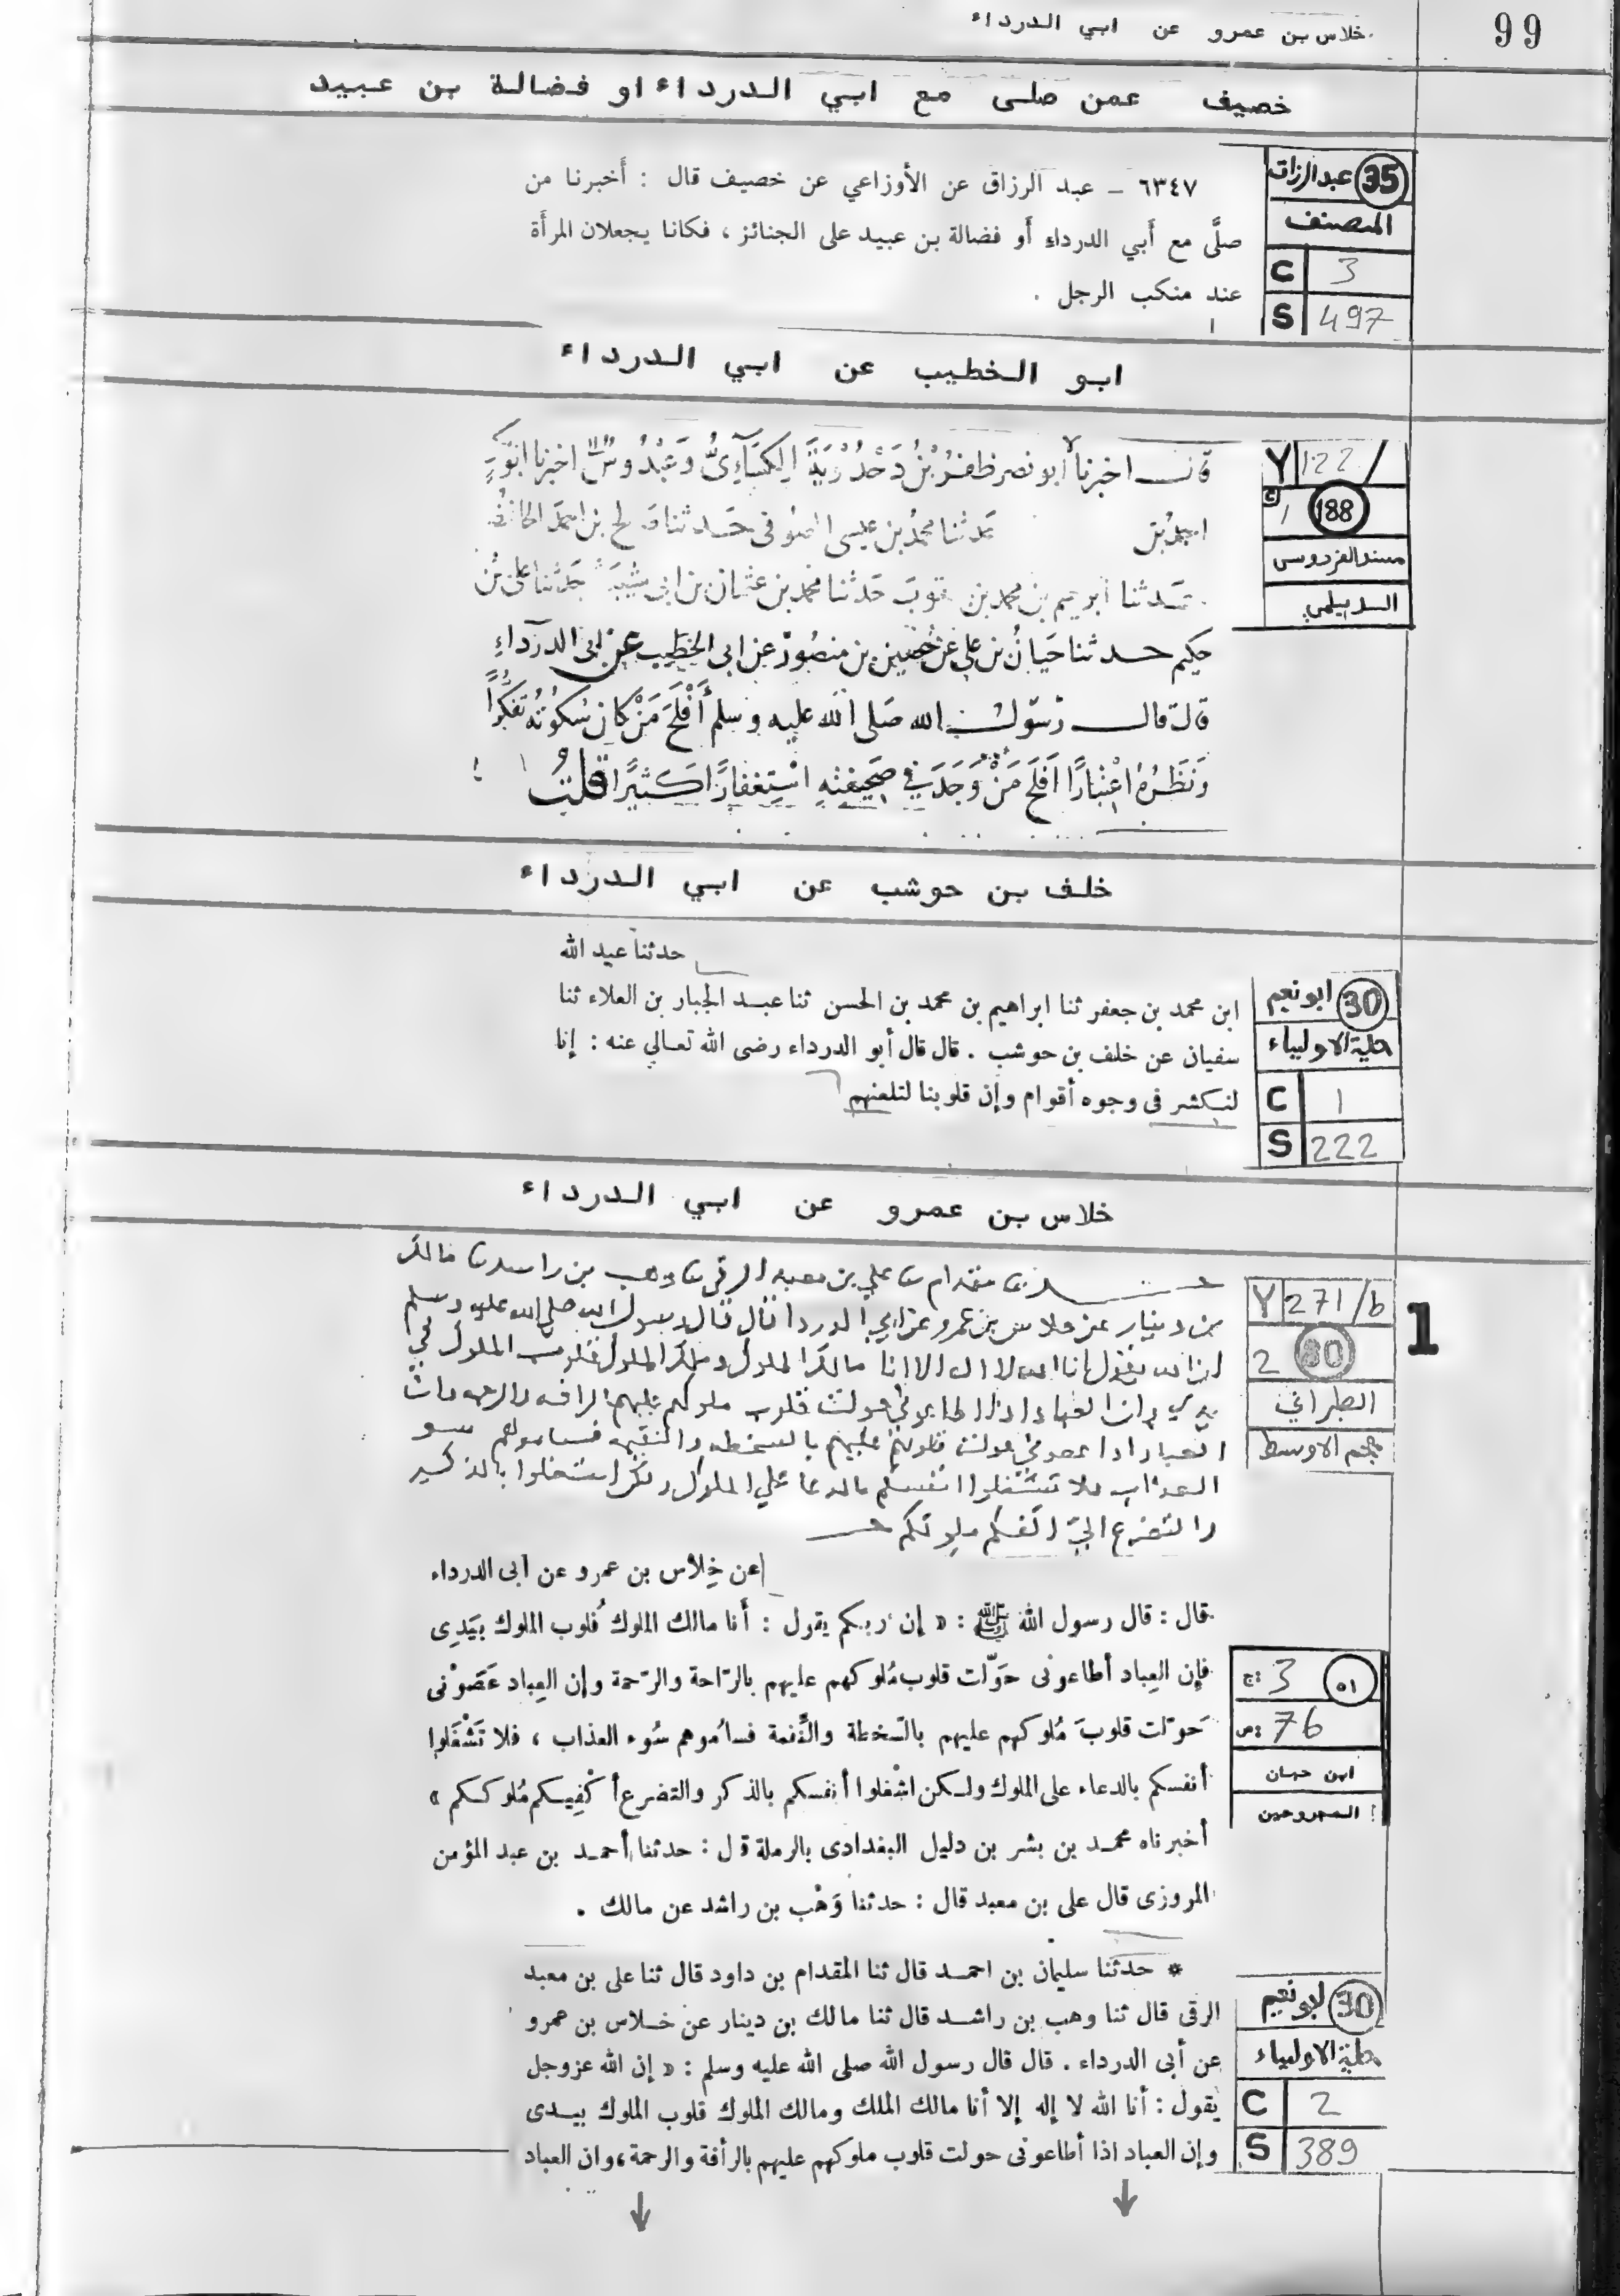 99
خلاس بن عمرو عن ابي الدرداء
خصيف عمن صلى مع ابي الدرداء او فضالة بن عبيد
35 عبد الرزاق
المصنف
C 3
S 497
٦٣٤٧ – عبد الرزاق عن الأوزاعي عن خصيف قال : أَخبرنا من
صلَّى مع أَبي الدرداءِ أَو فضالة بن عبيد على الجنائز ، فكانا يجعلان المرأَة
عند منكب الرجل .
ابو الخطيب عن ابي الدرداء
Y 122/
ج 1 188
مسند الفردوسى
الديلمي
اخبرنا أبو نصر ظفر بن اخبرنا ابو بكر
احمد بن حدثنا محمد بن عيسى الصوفى حدثنا صالح بن احمد الحافظ
حدثنا ابرهيم بن محمد بن يعقوب حدثنا محمد بن عثمان بن ابى شيبة حدثنا على بن
حكيم حدثنا حيان بن على عن حصين بن منصور عن ابى الخطيب عن ابى الدرداء
قال قال رسول الله صلى الله عليه وسلم أَفْلَحَ مَنْ كان سُكُوتُهُ تفَكُّرًا
وَنَظَرُهُ اعْتِبَارًا اَفلَحَ مَنْ وُجِدَ فِي صَحِيفَتِهِ اسْتِغفارًا كَثيرًا قلتُ
خلف بن حوشب عن ابي الدرداء
30 ابو نعيم
حلية الاولياء
C 1
S 222
حدثنا عبد الله
ابن محمد بن جعفر ثنا ابراهيم بن محمد بن الحسن ثنا عبد الجبار بن العلاء ثنا
سفيان عن خلف بن حوشب . قال قال أبو الدرداء رضى الله تعالي عنه : إنا
لنكشر فى وجوه أقوام وإن قلوبنا لتلعنهم
خلاس بن عمرو عن ابي الدرداء
Y 271/b
2 80
الطبراني
معجم الاوسط
1
حدثنا مقدام نا علي بن معبد الرقي نا وهب بن راشد نا مالك
بن دينار عن خلاس بن عمرو عن ابي الدردا قال قال رسول الله صلي الله عليه وسلم
ان الله يقول انا الله لا اله الا انا مالك الملوك وملك الملوك قلوب الملوك في
يدي وان العباد اذا اطاعوني حولت قلوب ملوكهم عليهم بالرافه والرحمه وان
العباد اذا عصوني حولت قلوبهم عليهم بالسخطه والنقمه فساموهم سو
العذاب فلا تشغلوا انفسكم بالدعا علي الملوك ولكن اشغلوا بالذكر
والتضرع الي اكفكم ملوككم
٥١ ج: 3
ص: 76
ابن حبان
المجروحين
عن خِلاس بن عمرو عن أبى الدرداء
قال : قال رسول الله ﷺ : « إن ربكم يقول : أنا مالك الملوك قُلوب الملوك بيَدِى
فإن العِباد أطاعونى حَوّلت قلوب مُلوكهم عليهم بالرّاحة والرّحمة وإن العِباد عَصَوْنى
حَوّلت قلوبَ مُلوكهم عليهم بالسّخطة والنِّقمة فسامُوهم سُوء العذاب ، فلا تَشْغَلوا
أنفسكم بالدعاء على الملوك ولكن اشْغلوا أنفسكم بالذكر والتضرع أكْفِيكم مُلوككم »
أخبرناه محمد بن بشر بن دليل البغدادى بالرملة قال : حدثنا أحمد بن عبد المؤمن
المروزى قال على بن معبد قال : حدثنا وَهْب بن راشد عن مالك .
30 ابو نعيم
حلية الاولياء
C 2
S 389
* حدثنا سليمان بن احمد قال ثنا المقدام بن داود قال ثنا على بن معبد
الرقى قال ثنا وهب بن راشد قال ثنا مالك بن دينار عن خلاس بن عمرو
عن أبى الدرداء . قال قال رسول الله صلى الله عليه وسلم : « إن الله عز وجل
يقول : أنا الله لا إله إلا أنا مالك الملك ومالك الملوك قلوب الملوك بيدى
وإن العباد اذا أطاعونى حولت قلوب ملوكهم عليهم بالرأفة والرحمة، وان العباد